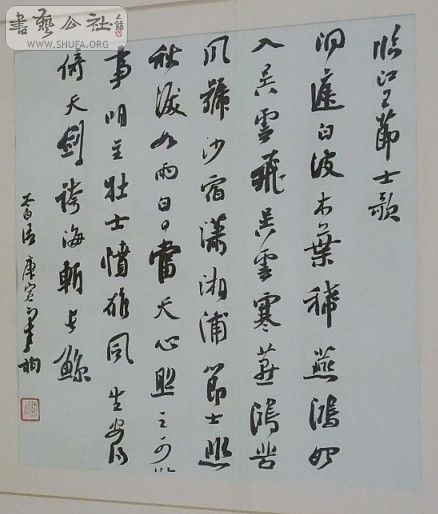 書藝公社
WWW.SHUFA.ORG
臨江王節士歌
洞庭白波木葉稀燕鴻始
入吳雲飛吳雲寒燕鴻苦
風號沙宿瀟湘浦節士悲
秋淚如雨白日當天心照之可以
事明主壯士憤雄風生安得
倚天劍跨海斬長鯨
太白詩 庚寅